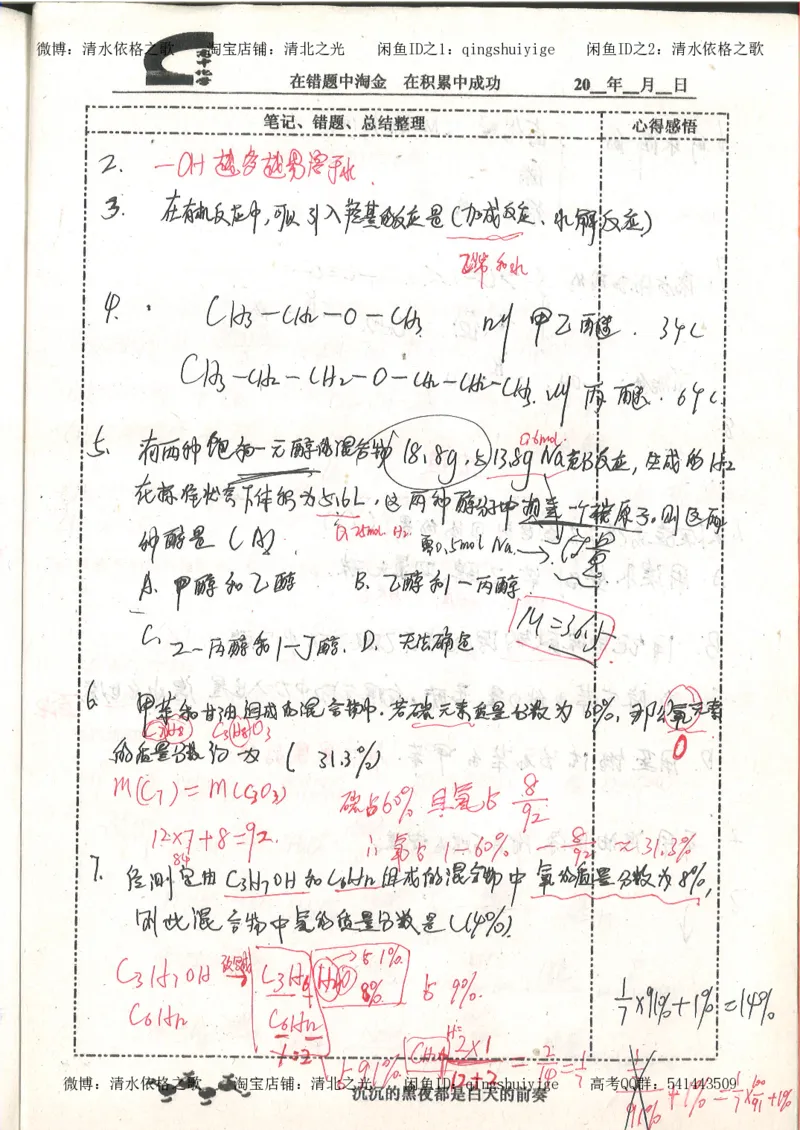 微博：清水依格之歌 淘宝店铺：清北之光 闲鱼ID之1：qingshuiyige 闲鱼ID之2：清水依格之歌
在错题中淘金 在积累中成功 20__年__月__日
笔记、错题、总结整理 心得感悟
2. —OH越多越易溶于水.
3. 在有机反应中,可以引入羟基的反应是(加成反应、水解反应)
烯和水
4. CH3—CH2—O—CH3 叫甲乙醚. 3个C
CH3—CH2—CH2—O—CH2—CH2—CH3. 叫丙醚. 6个C
5. 有两种饱和一元醇的混合物18.8g,与13.8g Na充分反应,生成的H2
0.6mol.
在标准状态下体积为5.6L,这两种醇分子中相差一个碳原子.则这两
0.25mol H2.
种醇是(A)
0.5mol Na. → 过量
A. 甲醇和乙醇 B. 乙醇和1-丙醇.
C. 2-丙醇和1-丁醇. D. 无法确定
6. 甲苯和甘油组成的混合物中.若碳元素质量分数为60%,那么氧元素
(C7H8) C3H8O3
O
的质量分数约为(31.3%)
M(C7)=M(C3O3) 碳占60% 且氢占 8/92
12×7+8=92.
84
∴氧占1-60% - 8/92 ≈31.3%
7. 经测定由C3H7OH和C6H12组成的混合物中氧的质量分数为8%,
则此混合物中氢的质量分数是(14%).
C3H7OH → C3H6 H2O → 占1% 8% 占9%.
C6H12 C6H12
1:2
占91% CH2 H=2×1/12+2 = 2/14 = 1/7
1/7×91%+1%=14%
微博：清水依格之歌 淘宝店铺：清北之光 闲鱼ID：qingshuiyige 高考QQ群：541443509
沉沉的黑夜都是白天的前奏